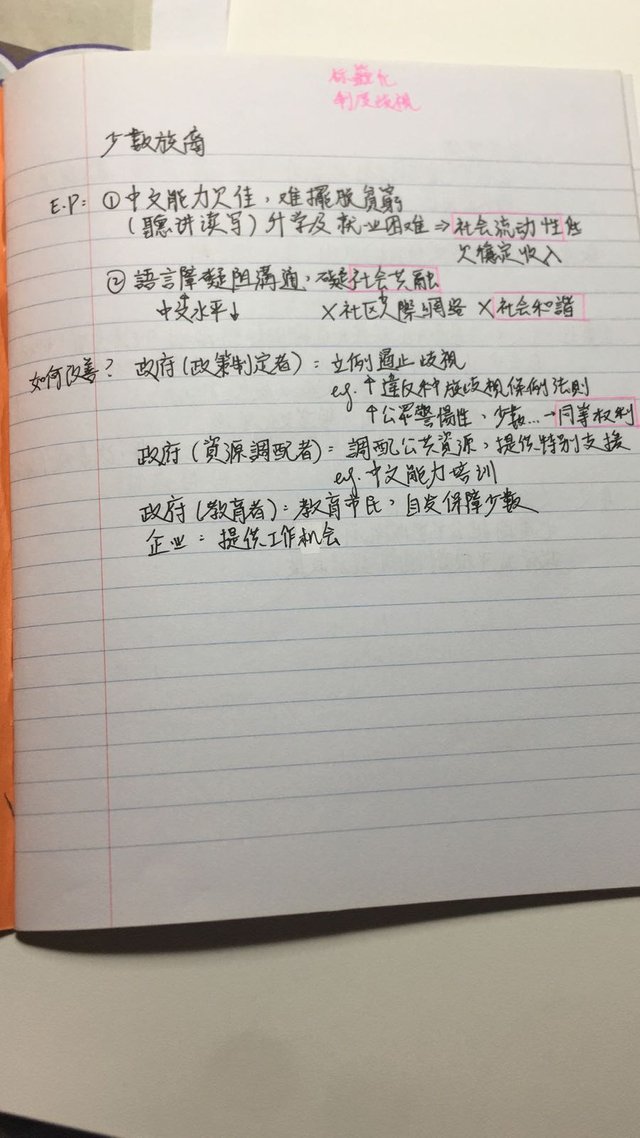 标籤化
制度歧視
少數族裔
E.P: ① 中文能力欠佳，难擺脱貧窮
(聽讲读写) 升学及就业困难 ⇒ 社会流动性低
欠穩定收入
② 語言障礙阻溝通，礙社会共融
中文水平↓ ×社区人際網络 ×社会和諧
如何改善? 政府(政策制定者)：立例遏止歧視
eg. ↑違反种族歧視條例法则
↑公眾警惕性、少数...→同等权利
政府(資源調配者)：調配公共資源，提供特别支援
eg. 中文能力培训
政府(教育者)：教育市民，自发保障少数
企业：提供工作机会